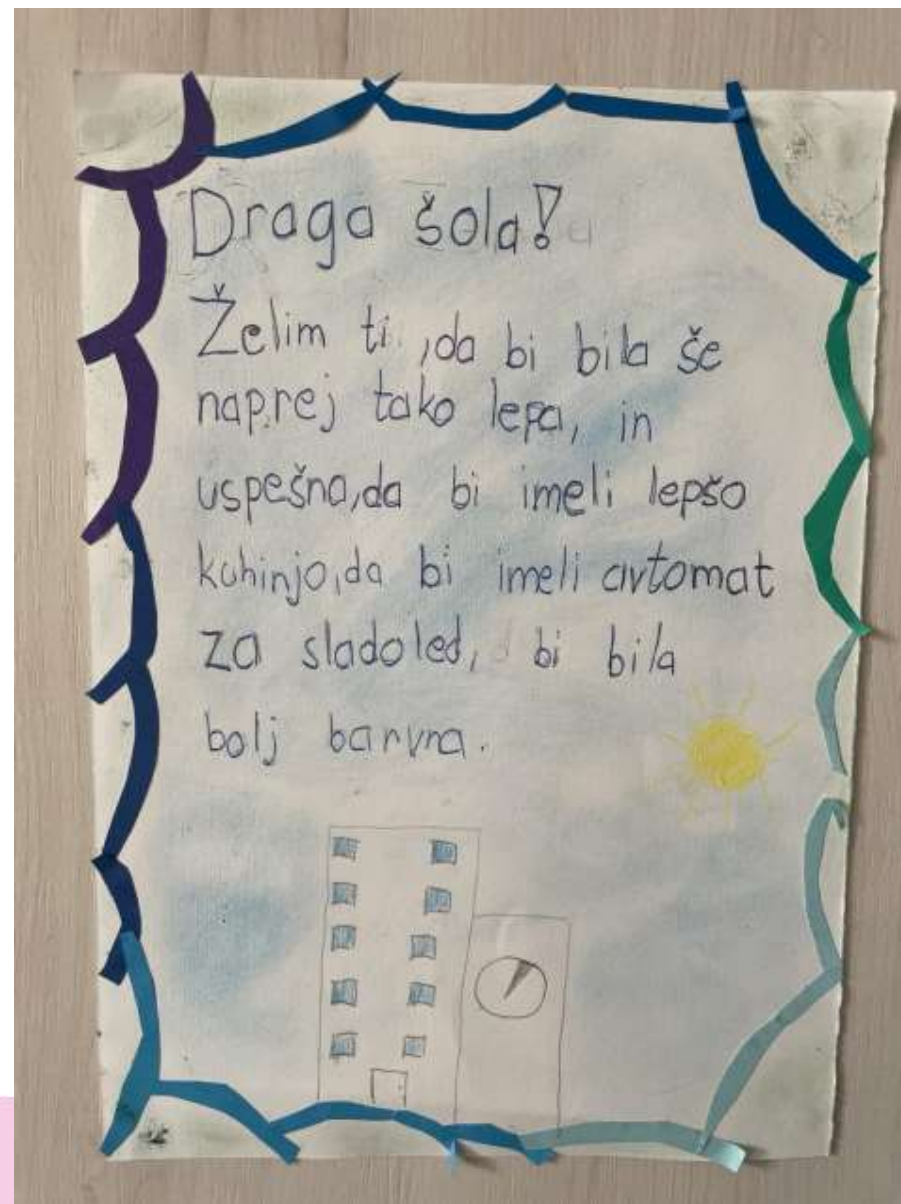 Draga šola!
Želim ti, da bi bila še
naprej tako lepa, in
uspešna, da bi imeli lepšo
kuhinjo, da bi imeli avtomat
za sladoled, bi bila
bolj barvna.